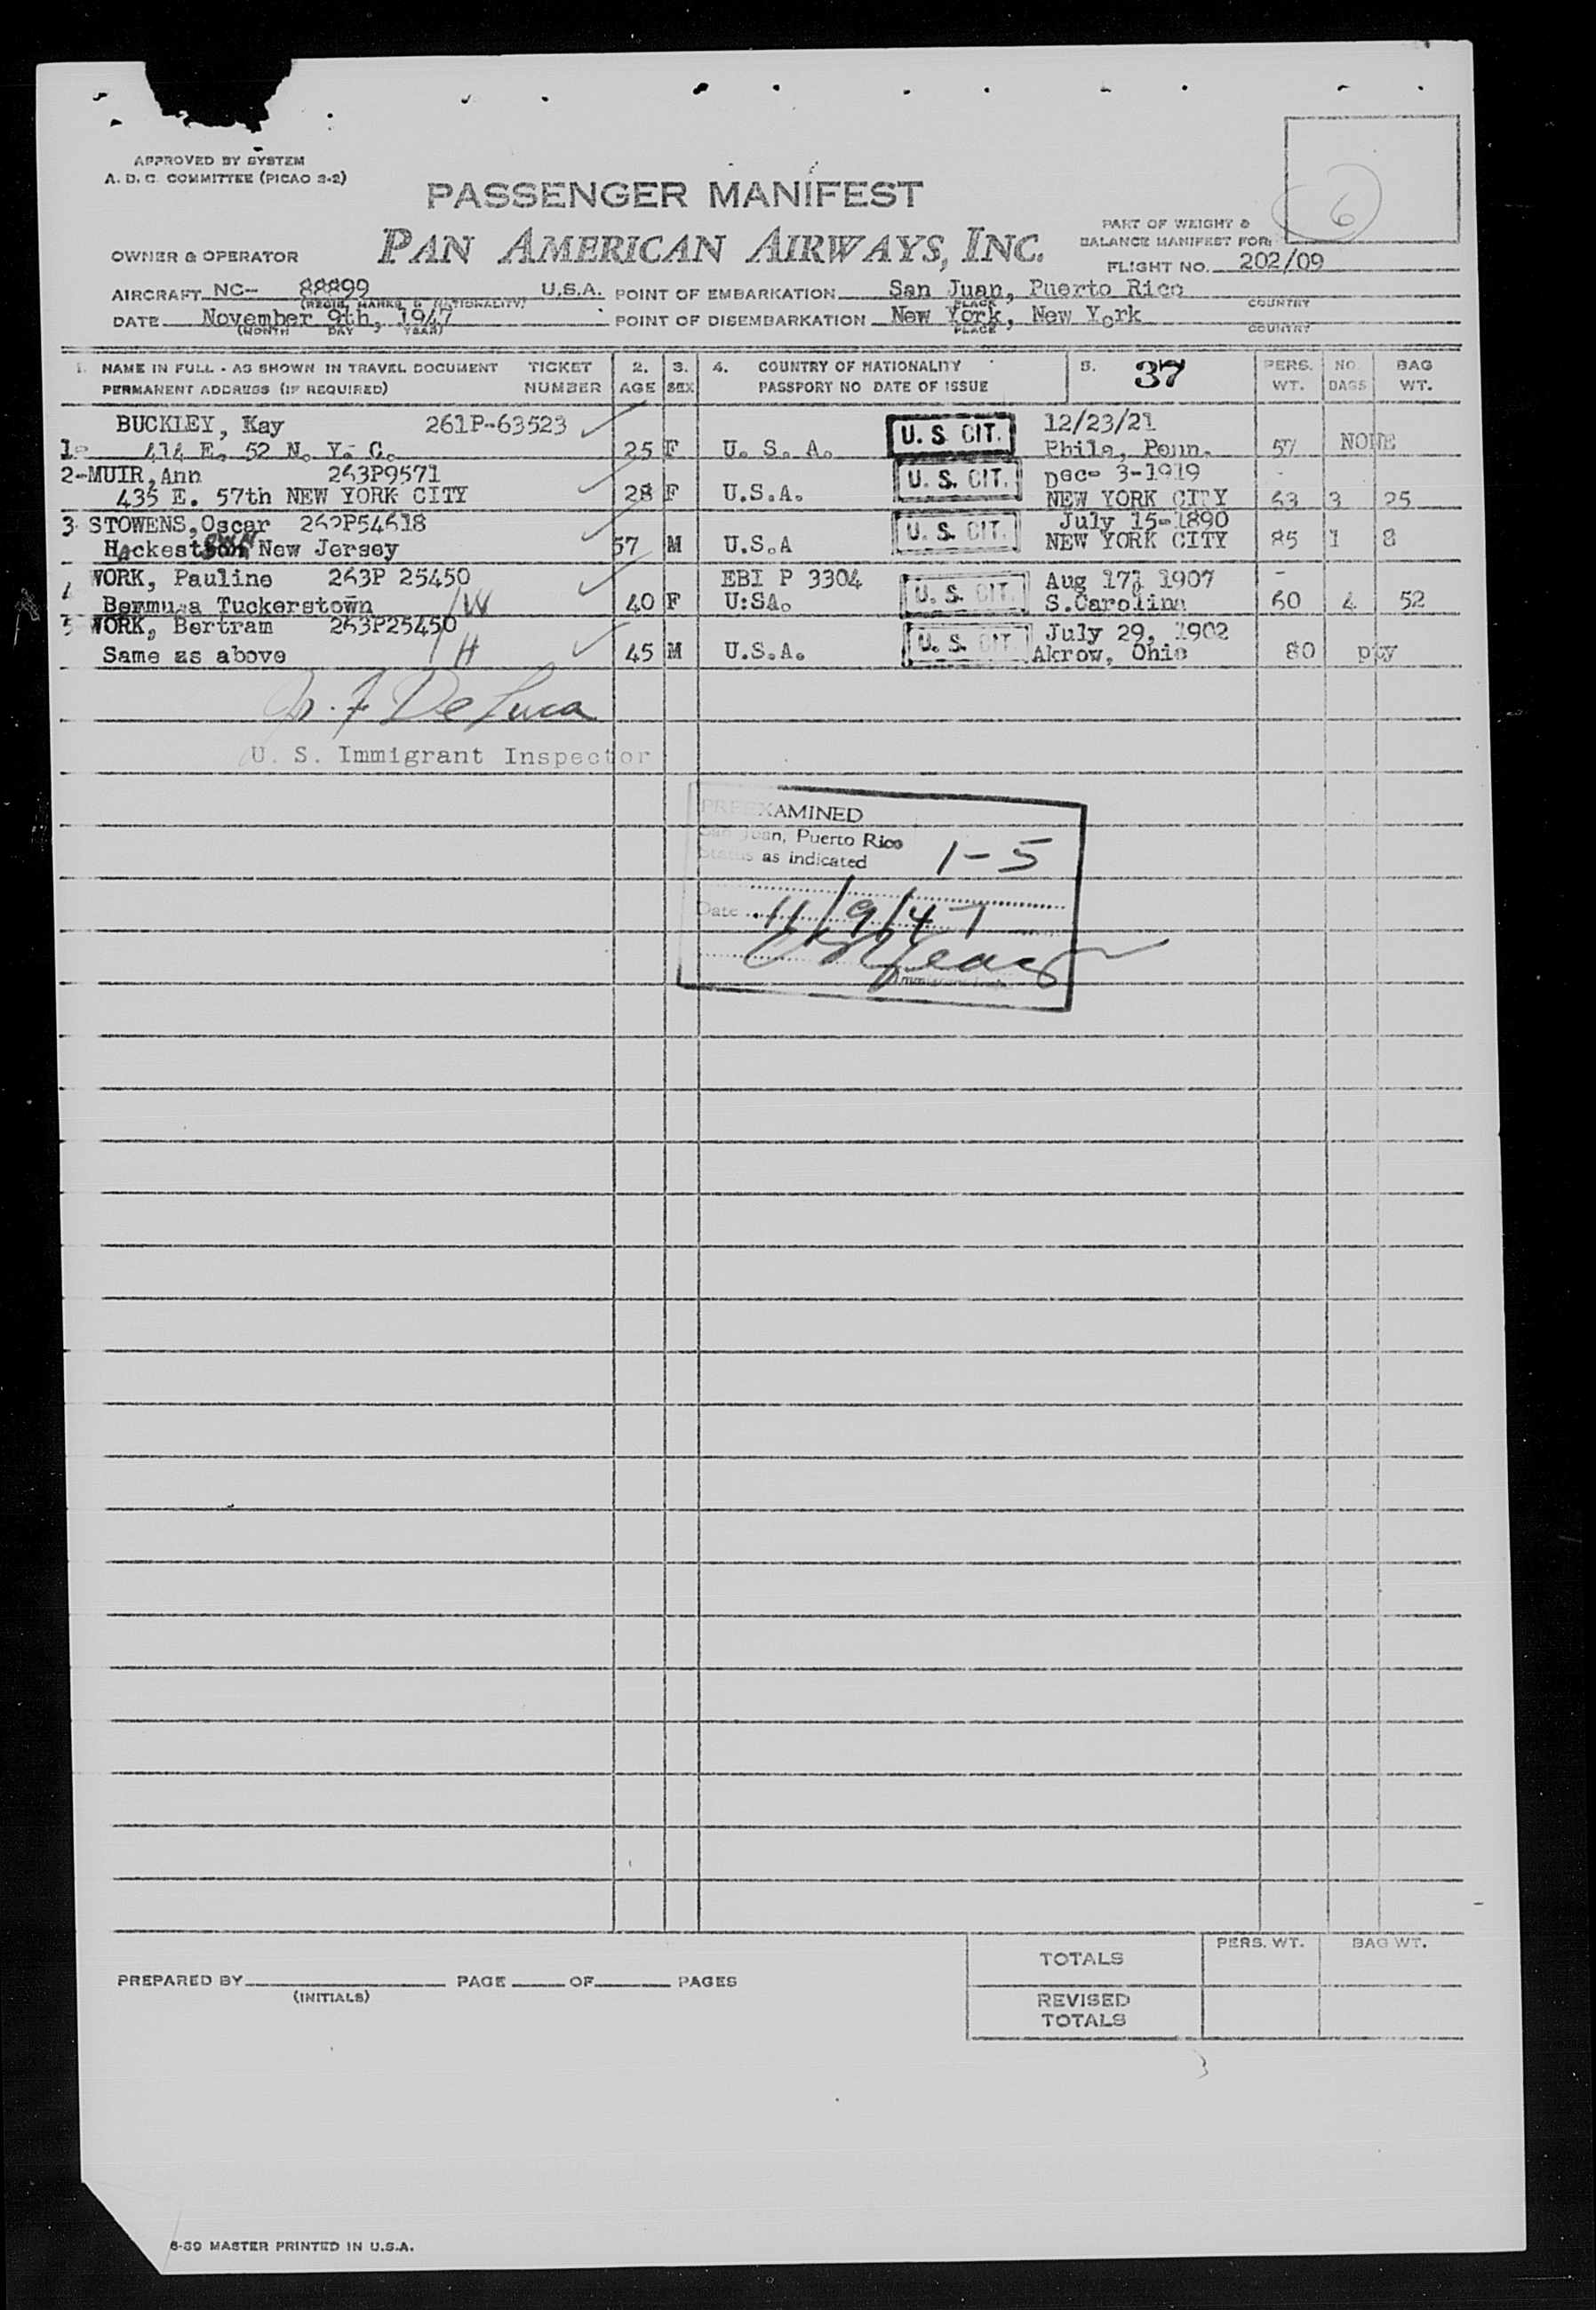 APPROVED BY SYSTEM
A. D. C. COMMITTEE (PICAO 3-2)
PASSENGER MANIFEST
6
PART OF WEIGHT &
BALANCE MANIFEST FOR:
OWNER & OPERATOR PAN AMERICAN AIRWAYS, INC.
FLIGHT NO. 202/09
AIRCRAFT NC- 88899 U.S.A. POINT OF EMBARKATION San Juan, Puerto Rico
(REGIS. MARKS & NATIONALITY) PLACE COUNTRY
DATE November 9th, 1947 POINT OF DISEMBARKATION New York, New York
(MONTH DAY YEAR) PLACE COUNTRY
1. NAME IN FULL - AS SHOWN IN TRAVEL DOCUMENT TICKET 2. 3. 4. COUNTRY OF NATIONALITY 5. 37 PERS. NO. BAG
PERMANENT ADDRESS (IF REQUIRED) NUMBER AGE SEX PASSPORT NO DATE OF ISSUE WT. BAGS WT.
BUCKLEY, Kay 261P-63523 U. S. CIT. 12/23/21
1- 414 E. 52 N. Y. C. 25 F U. S. A. Phila, Penn. 57 NONE
2-MUIR, Ann 263P9571 U. S. CIT. Dec- 3-1919
435 E. 57th NEW YORK CITY 28 F U.S.A. NEW YORK CITY 63 3 25
3 STOWENS, Oscar 262P54618 U. S. CIT. July 15-1890
New Jersey 57 M U.S.A NEW YORK CITY 85 1 8
4 WORK, Pauline 263P 25450 EBI P 3304 U. S. CIT. Aug 17, 1907
Bermuda Tuckerstown W 40 F U:SA. S.Carolina 60 4 52
5 WORK, Bertram 263P25450 U. S. CIT. July 29, 1902
Same as above H 45 M U.S.A. Akrow, Ohio 80 pty
De Luca
U. S. Immigrant Inspector
PREEXAMINED
San Juan, Puerto Rico
Status as indicated 1-5
Date 11/9/47
PREPARED BY PAGE OF PAGES
(INITIALS)
TOTALS PERS. WT. BAG WT.
REVISED
TOTALS
6-39 MASTER PRINTED IN U.S.A.